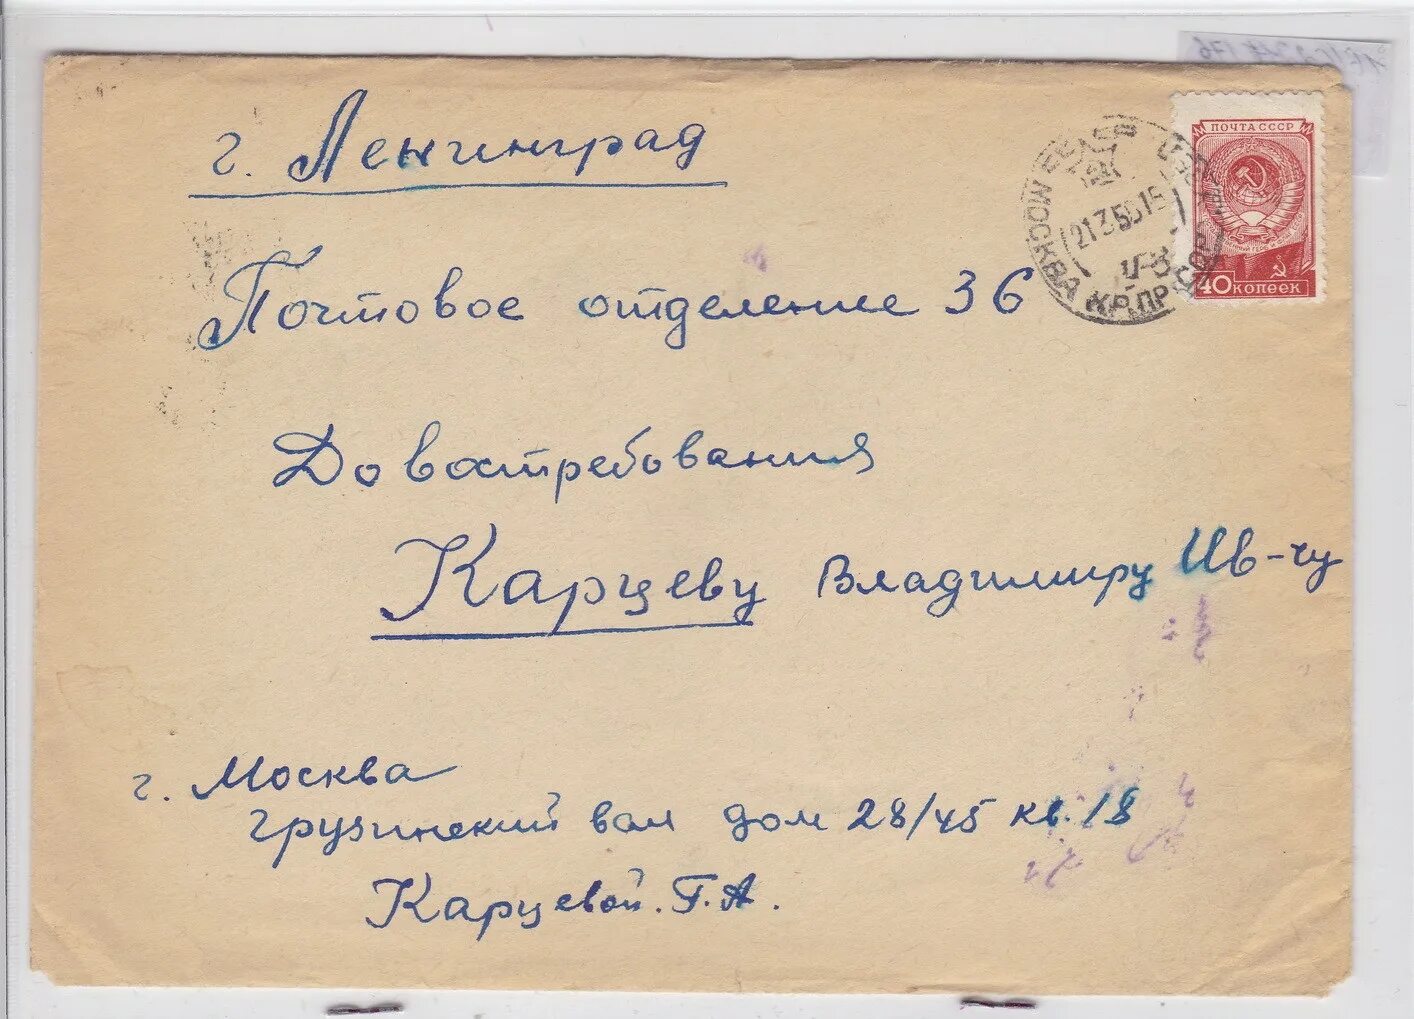 г. Ленинград
ПОЧТА СССР
21 3 55 15
МОСКВА
40 КОПЕЕК
Почтовое отделение 36
До востребования
Карцеву Владимиру Ив-чу
г. Москва
Грузинский вал дом 28/45 кв. 18
Карцевой. Г. А.